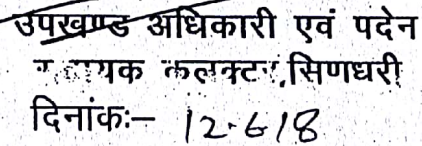 उपखण्ड अधिकारी एवं पदेन
सहायक कलक्टर, सिणधरी
दिनांकः- 12.6/18